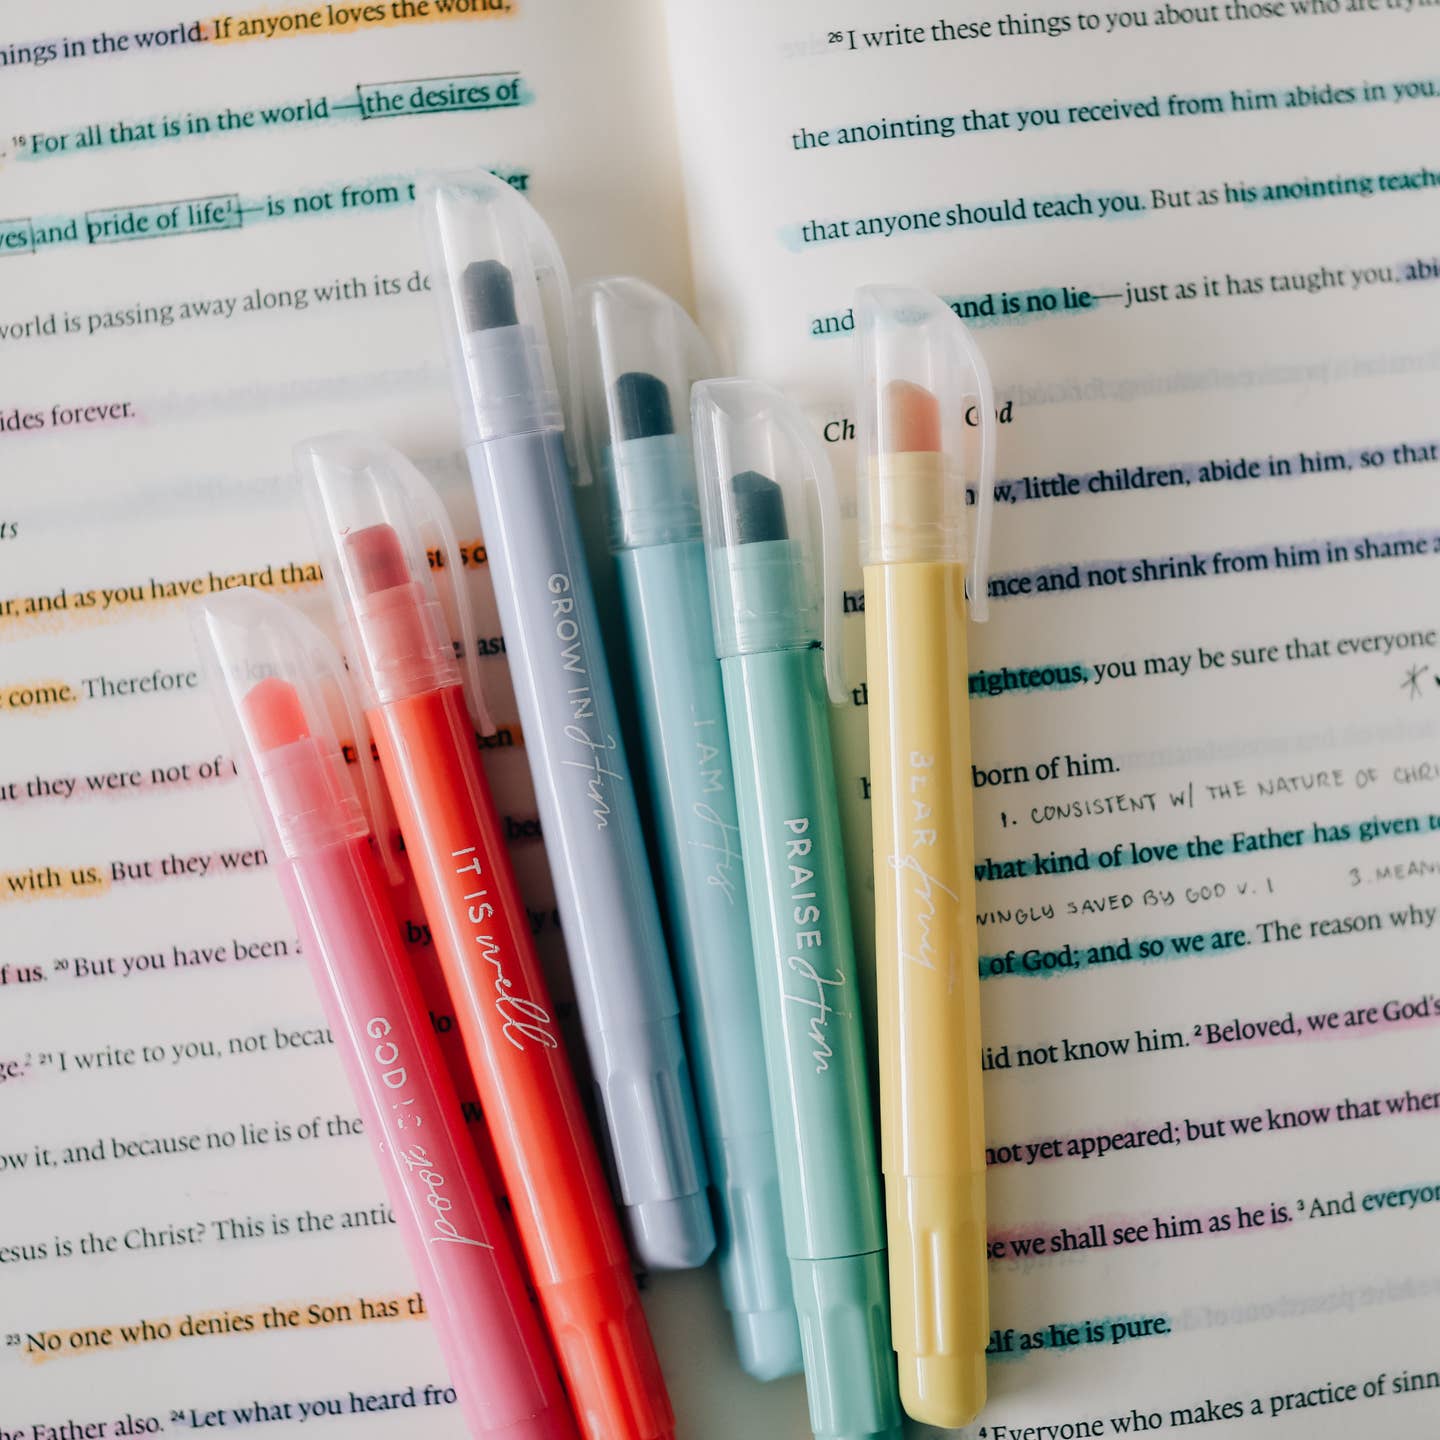 ings in the world. If anyone loves the world,
16 For all that is in the world—the desires of
yes and pride of life1—is not from t er
world is passing away along with its de
ides forever.
ts
r, and as you have heard that
come. Therefore
ut they were not of
with us. But they wen
f us. 20 But you have been a
ge.2 21 I write to you, not becau
ow it, and because no lie is of the
esus is the Christ? This is the antic
23 No one who denies the Son has th
he Father also. 24 Let what you heard fro
GOD IS good
IT IS well
GROW IN Him
I AM His
PRAISE Him
BEAR fruit
26 I write these things to you about those who are
the anointing that you received from him abides in you,
that anyone should teach you. But as his anointing teache
and and is no lie—just as it has taught you, abi
Ch God
w, little children, abide in him, so that
ha ence and not shrink from him in shame a
th righteous, you may be sure that everyone
h born of him.
1. CONSISTENT W/ THE NATURE OF CHRI
what kind of love the Father has given to
VINGLY SAVED BY GOD V. 1 3. MEAN
of God; and so we are. The reason why
did not know him. 2 Beloved, we are God's
not yet appeared; but we know that when
se we shall see him as he is. 3 And everyon
elf as he is pure.
4 Everyone who makes a practice of sinn